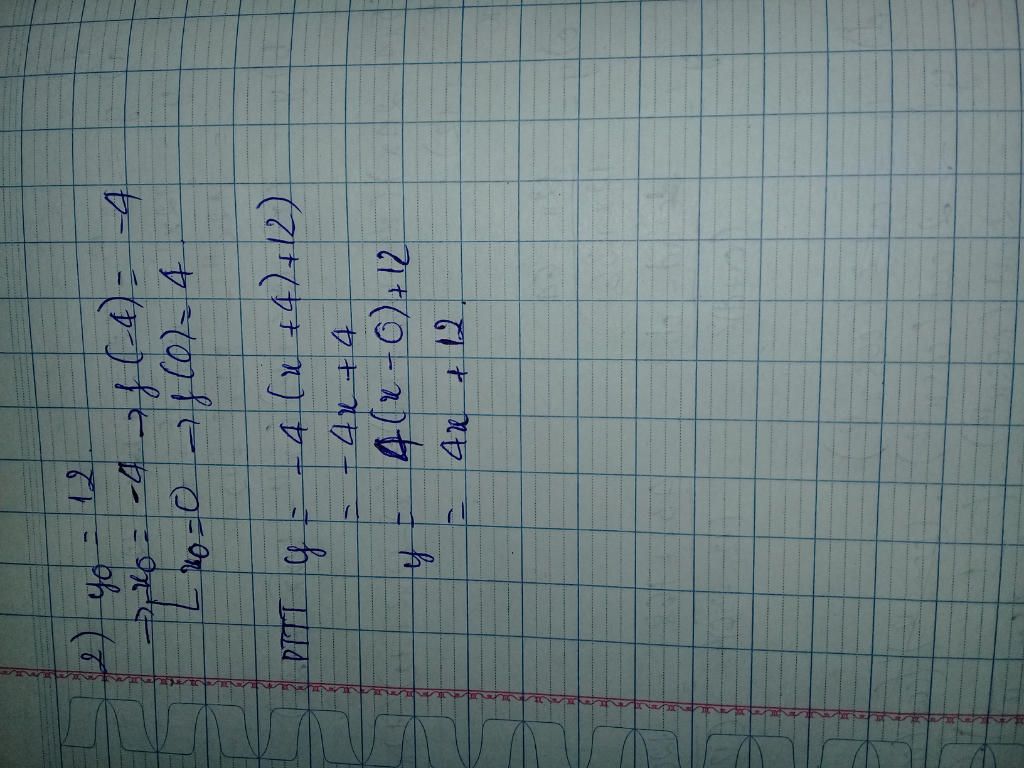 2) y₀ = 12
→ [ x₀ = -4 → f(-4) = -4
x₀ = 0 → f(0) = 4
PTTT y = -4 (x + 4) + 12)
= -4x + 4
y = 4(x - 0) + 12
= 4x + 12.